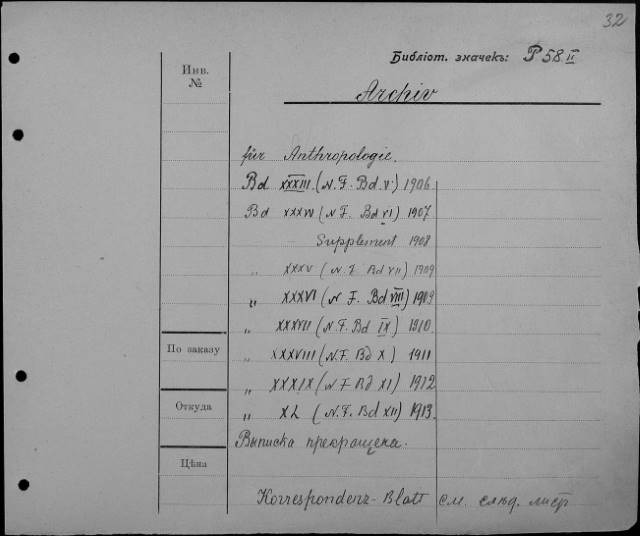 32
Библіот. значекъ: P 58 II
Инв. №
Archiv
für Anthropologie.
Bd XXXIII. (N. F. Bd. V.) 1906
Bd XXXIV (N. F. Bd VI) 1907
Supplement 1908
„ XXXV (N. F. Bd VII) 1909
„ XXXVI (N. F. Bd VIII) 1909
„ XXXVII (N. F. Bd IX) 1910
По заказу
„ XXXVIII (N. F. Bd X) 1911
„ XXXIX (N. F. Bd XI) 1912
Откуда
„ XL (N. F. Bd XII) 1913.
Выписка прекращена.
Цѣна
Korrespondenz-Blatt см. слѣд. листъ